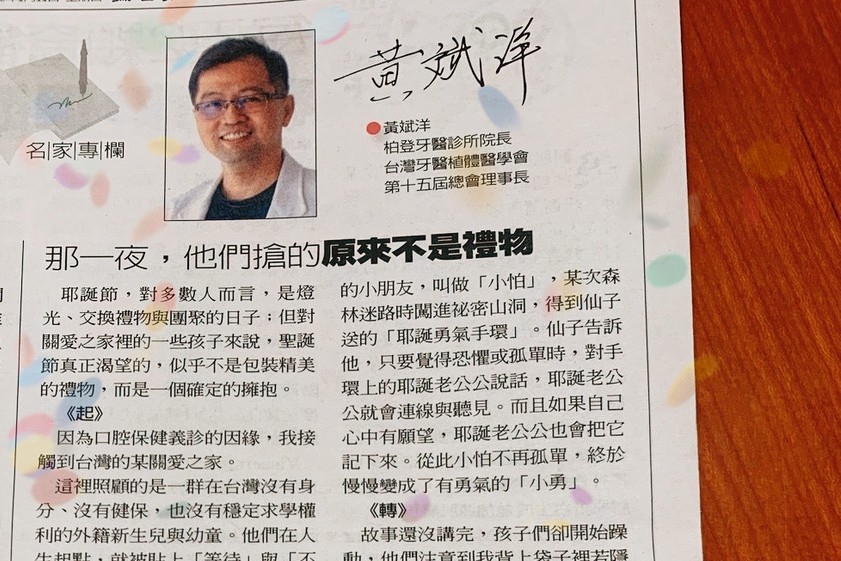 名家專欄
黃斌洋
黃斌洋
柏登牙醫診所院長
台灣牙醫植體醫學會
第十五屆總會理事長
那一夜，他們搶的原來不是禮物
耶誕節，對多數人而言，是燈
光、交換禮物與團聚的日子；但對
關愛之家裡的一些孩子來說，聖誕
節真正渴望的，似乎不是包裝精美
的禮物，而是一個確定的擁抱。
《起》
因為口腔保健義診的因緣，我接
觸到台灣的某關愛之家。
這裡照顧的是一群在台灣沒有身
分、沒有健保，也沒有穩定求學權
利的外籍新生兒與幼童。他們在人
生起點，就被貼上「等待」與「不
的小朋友，叫做「小怕」，某次森
林迷路時闖進祕密山洞，得到仙子
送的「耶誕勇氣手環」。仙子告訴
他，只要覺得恐懼或孤單時，對手
環上的耶誕老公公說話，耶誕老公
公就會連線與聽見。而且如果自己
心中有願望，耶誕老公公也會把它
記下來。從此小怕不再孤單，終於
慢慢變成了有勇氣的「小勇」。
《轉》
故事還沒講完，孩子們卻開始躁
動，他們注意到我背上袋子裡若隱